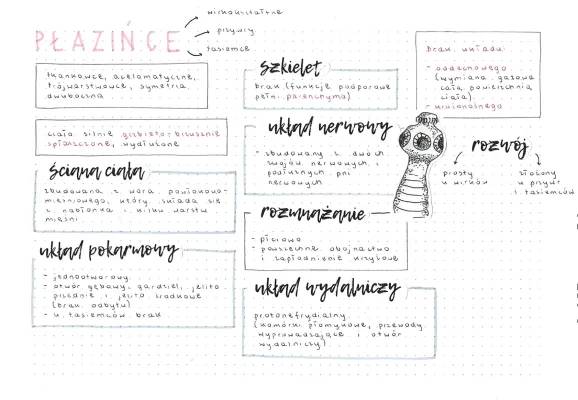 PŁAZIŃCE
wirkokształtne
przywry
tasiemce
tkankowce, acelomatyczne,
trójwarstwowce, symetria
dwuboczna
ciała silnie grzbieto-brzusznie
spłaszczone, wydłużone
ściana ciała
zbudowana z wora powłokowo-
mięśniowego, który składa się
z nabłonka i kilku warstw
mięśni
układ pokarmowy
- jednootworowy
- otwór gębowy, gardziel, jelito
przednie i jelito środkowe
(brak odbytu)
- u tasiemców brak
szkielet
brak (funkcje podporowe
pełni parenchyma)
układ nerwowy
- zbudowany z dwóch
zwojów nerwowych i
podłużnych pni
nerwowych
rozmnażanie
- płciowo
- powszechne obojnactwo
i zapłodnienie krzyżowe
układ wydalniczy
protonefrydialny
(komórki płomykowe, przewody
wyprowadzające i otwór
wydalniczy)
brak układu:
- oddechowego
(wymiana gazowa
całą powierzchnią
ciała)
- krwionośnego
rozwój
prosty
u wirków
złożony
u przywr
i tasiemców